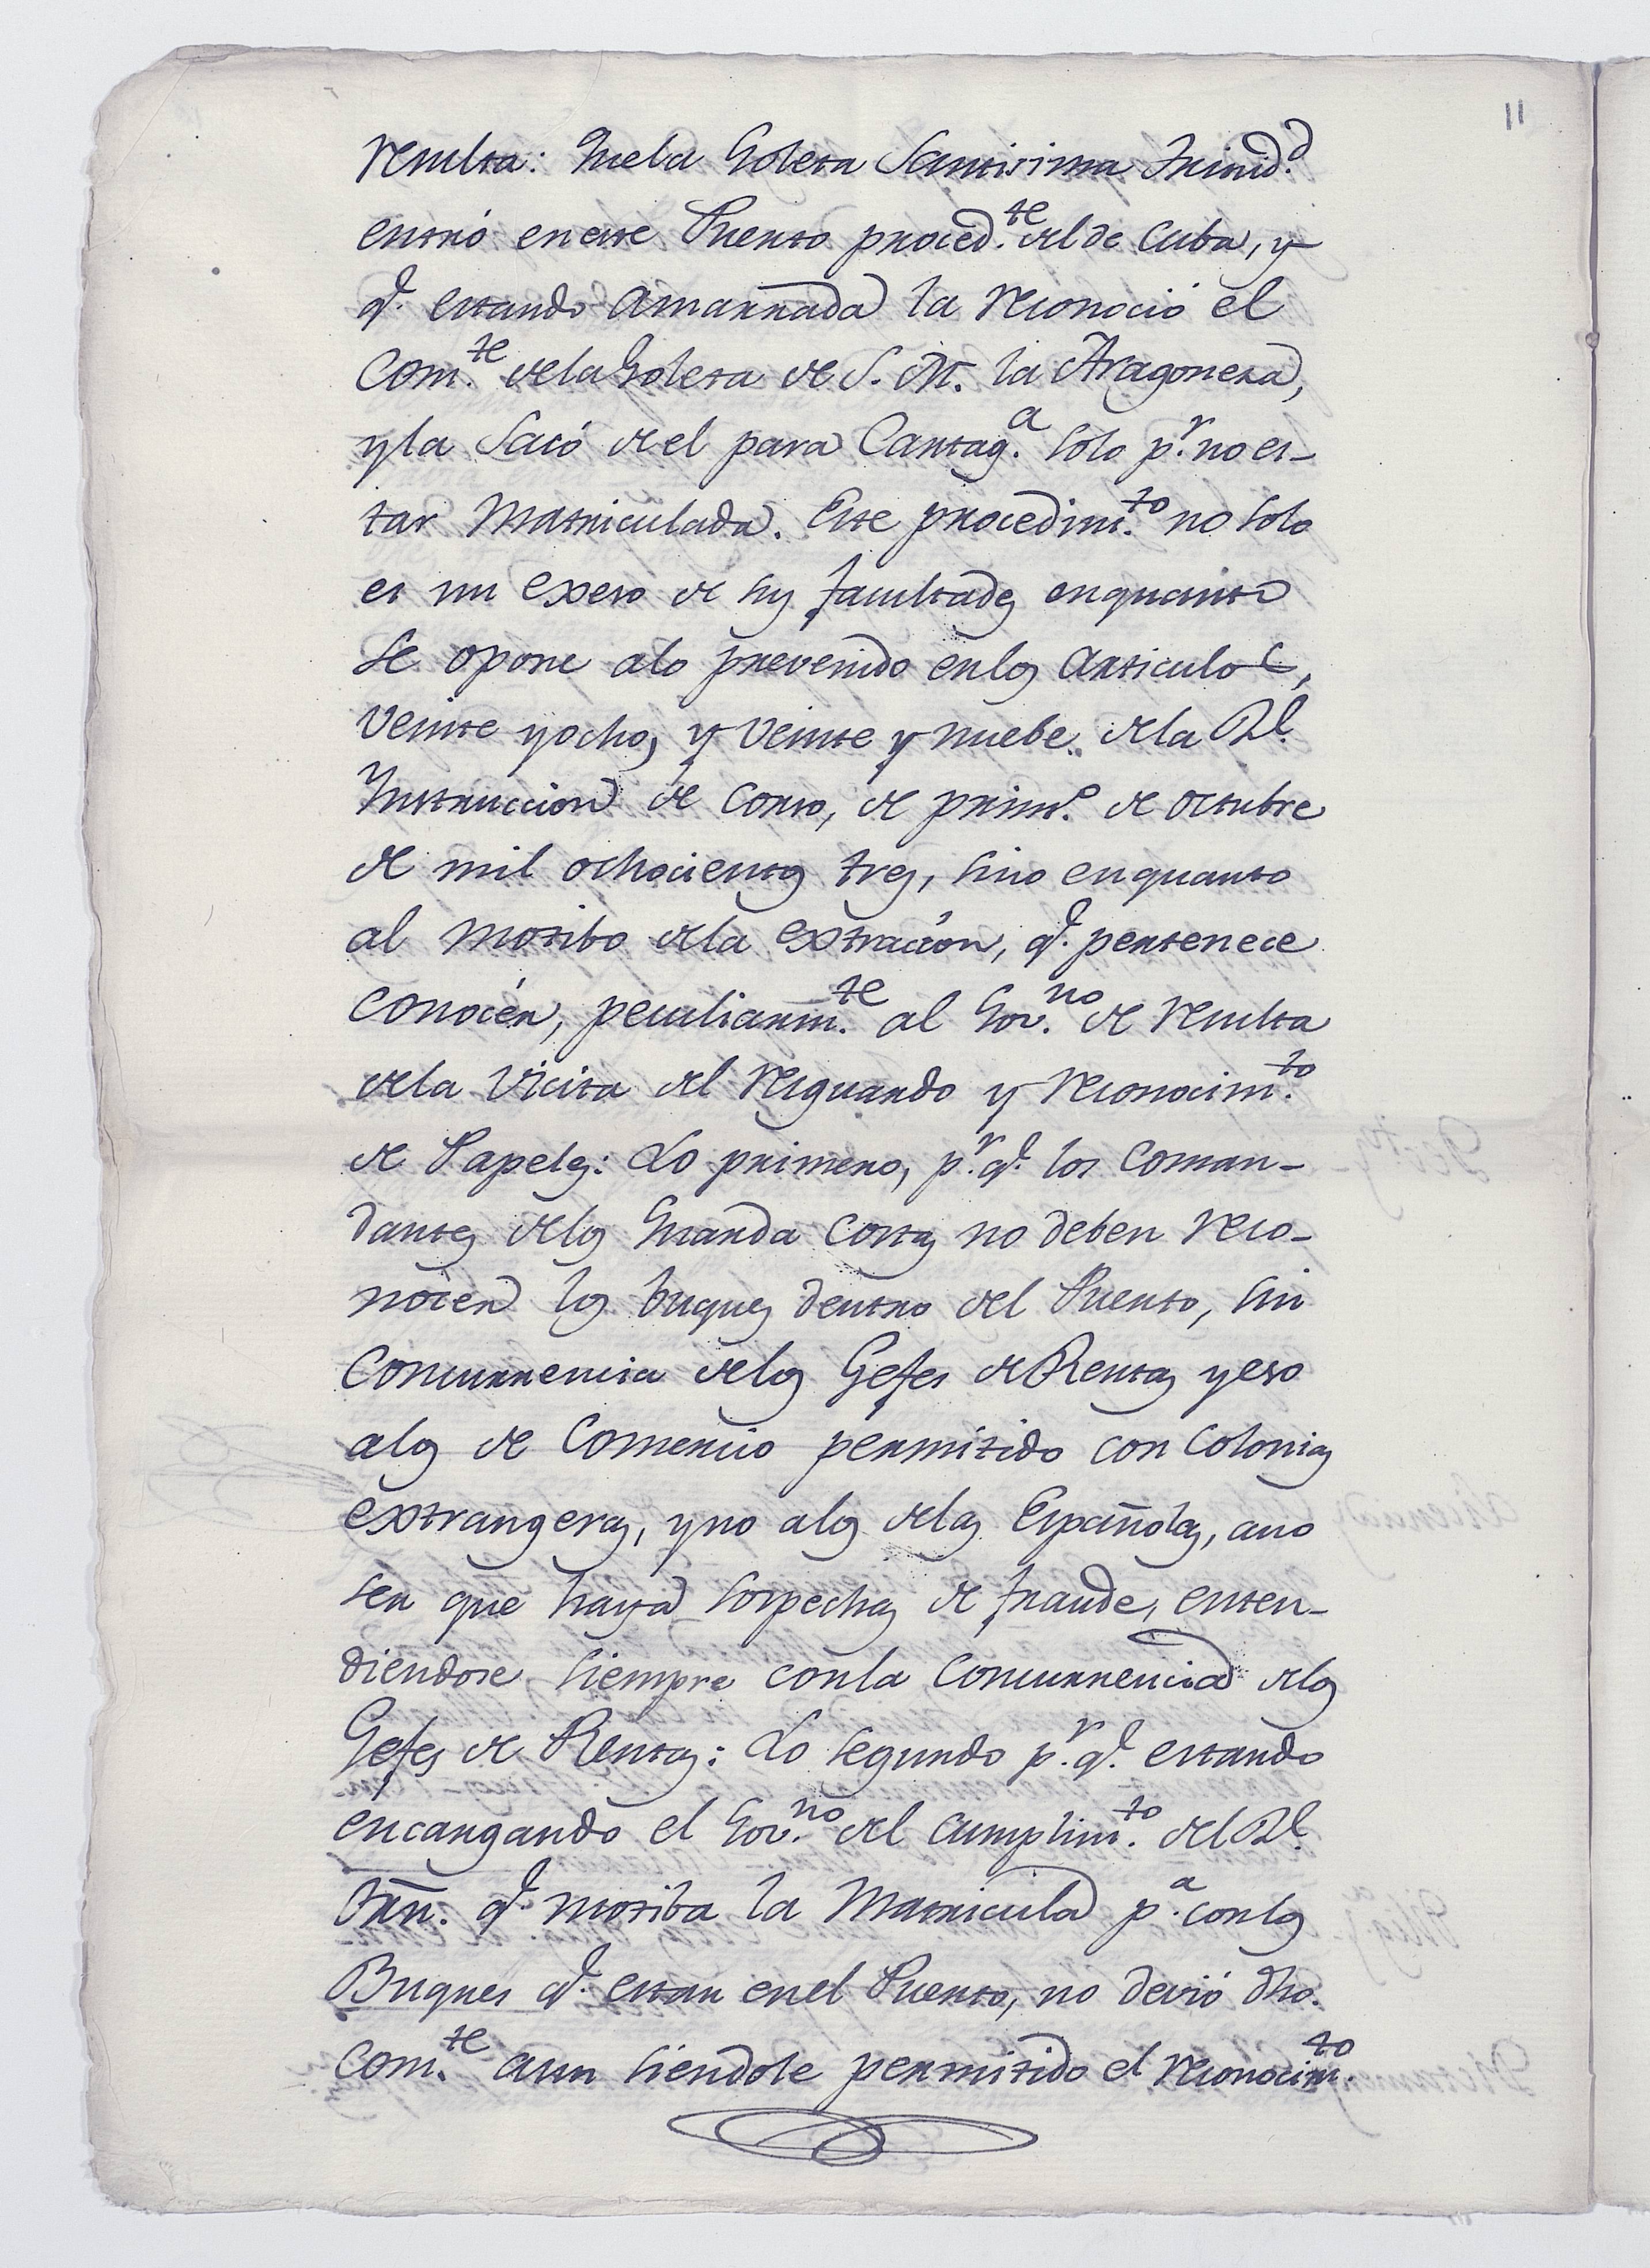 11
resulta: Quela Goleta Santisima Trinid.d
entró eneste Puerto proced.te del de Cuba, y
q.e estando amarrada la reconoció el
Com.te dela Goleta de S. M. la Aragonesa,
yla sacó del para Cartag.a solo p.r no es-
tar Matriculada. Este procedim.to no solo
es un exeso de sus facultades enquanto
se opone alo prevenido enlos articulos,
veinte yocho, y veinte y nuebe dela Rl.
Instruccion de Corso, de prim.o de octubre
de mil ochocientos tres, sino enquanto
al motibo dela extracion, q.e pertenece
conocér, peculiarm.te al Gov.no de resulta
dela Vicita del resguardo y reconocim.to
de Papeles: Lo primero, p.r q.e los Coman-
dantes delos Guarda Costas no deben reco-
nocer los buques dentro del Puerto, sin
concurrencia delos Gefes de Rentas yeso
alos de Comercio permitido con Colonias
extrangeras, yno alos delas Españolas, ano
ser que haya sospechas de fraude, enten-
diendose siempre conla concurrencia delos
Gefes de Rentas: Lo segundo p.r q.e estando
encargando el Gov.no del cumplim.to del Rl.
Orn. q.e motiba la Matricula p.a conlos
Buques q.e estan enel Puerto, no devió dho.
Com.te aun siendole permitido el reconocim.to